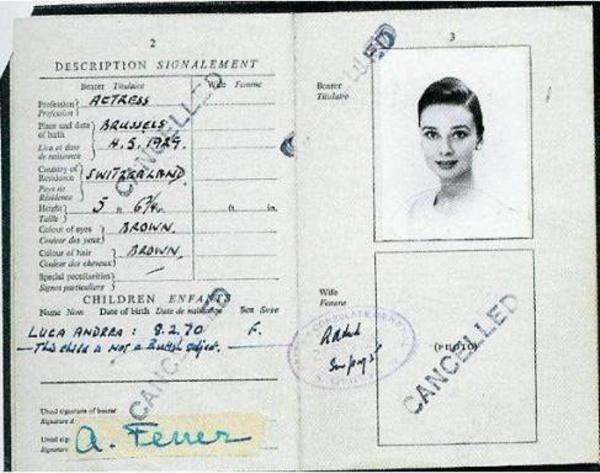 2
DESCRIPTION SIGNALEMENT
Bearer Titulaire Wife Femme
Profession ACTRESS
Profession
Place and date of birth BRUSSELS
Lieu et date de naissance 4.5.1929.
Country of Residence SWITZERLAND
Pays de Résidence
Height 5 ft. in.
Taille
Colour of eyes BROWN.
Couleur des yeux
Colour of hair BROWN.
Couleur des cheveux
Special peculiarities
Signes particuliers
CANCELLED
CHILDREN ENFANTS
Name Nom Date of birth Date de naissance Sex Sexe
LUCA ANDREA: 8.2.70 F.
This child is not a British subject.
CANCELLED
Usual signature of bearer
Signature d
Usual sig
Signature
A. Ferrer
3
Bearer
Titulaire
Wife
Femme
CONSULATE GENERAL
(PHOTO)
CANCELLED